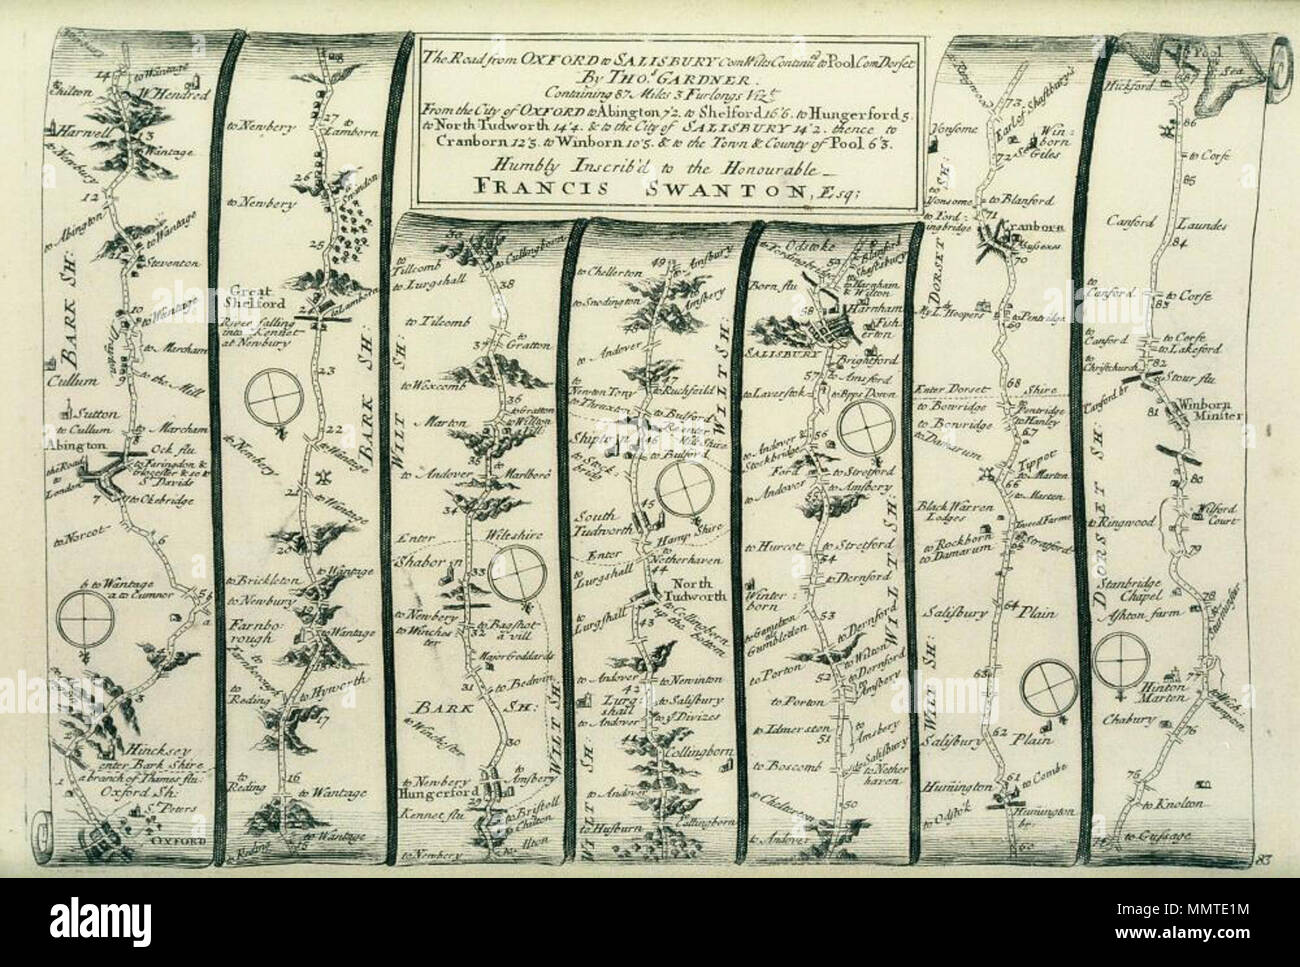 The Road from OXFORD to SALISBURY Com Wilts Continu'd to Pool Com Dorset
By THO.s GARDNER.
Containing 87 Miles 3 Furlongs Viz.t
From the City of OXFORD to Abington 7'2. to Shelford 16'6. to Hungerford 5.
to North Tudworth 14'4. & to the City of SALISBURY 14'2. thence to
Cranborn 12'5. to Winborn 10'5. & to the Town & County of Pool 6'3.
Humbly Inscrib'd to the Honourable
FRANCIS SWANTON, Esq;
14
to Wantage
Chilton
W. Hendred
Harwell
13
to Newbury
Wantage
12
to Abington
to Wantage
BARK SH:
Steventon
10
to Wantage
Drayton
to Marcham
9
to the Mill
Cullum
Sutton
to Cullum
to Marcham
8
Abington
Ock flu
the Road
to London
to Faringdon &
St Davids
7
to Ockbridge
to Norcot
6
b to Wantage
a to Cumnor
5
3
Hincksey
enter Bark Shire
a branch of Thames flu
1
Oxford Sh:
St Peters
OXFORD
28
27
to Newbery
to Lamborn
26
to Newbery
to Swindon
25
Great
Shelford
24
to Lamborn
River falling
into Kennet
at Newbury
BARK SH:
23
22
to Newbery
to Wantage
21
to Wantage
20
to Wantage
to Brickleton
to Newbury
19
Farnbo-
rough
to Wantage
to Farnborough
to Reding
to Hyworth
17
to
Reding
16
to Wantage
to Reding
15
to Wantage
to
Tillcomb
to Cullingborn
to Lurgshall
38
to Tilcomb
37
to Gratton
WILT SH:
to Wexcomb
36
to Gratton
to Willton
hill
Marton
35
to Andover
Marlboro
34
Enter
Wiltshire
Shaborn
33
to Newbery
to Winchester
32
to Bagshot
a vill
Major Goddards
31
to Bedwin
BARK SH:
to Winchester
30
WILT SH:
to Newbery
to Amsbery
Hungerford
29
Kennet flu
to Bristoll
to Chilton
to Newbery
to Alton
49
to Amsbury
to Chellerton
to Snodington
Amsbery
to Andover
47
to
Newton Tony
to Ruchfeild
to Thruxton
to Bulford
Reenter
Wilt Shire
46
Shipton
to Bulford
45
South
Tudworth
Hamp Shire
Enter
to
Netherhaven
to Lurgshall
44
North
Tudworth
to Lurgshall
43
to Collingborn
up the bottom
to Andover
42
to Newinton
Lurg-
shall
to Salisbury
to Andover
to ye Divizes
WILT SH:
Collingborn
to Andover
to Husburn
Collingborn
WILT SH:
Odstoke
to Fordingbridge
59
to Blanford
Shaftsbury
Born flu
to Harnham
& Wilton
58
Harnham
Fish-
erton
SALISBURY
Brightford
to Amsford
57
to Laverstock
to Opps Down
to Andover
56
Stockbridge
Ford
to Stretford
to Andover
55
to Amsbery
to Hurcot
to Stretford
54
to Dernford
Winter-
born
53
to Dernford
to Gumelton
at
Gumbledon
to Wilton
to Porton
52
to Dernford
to Amsbery
to Porton
to Idmerston
to Amsbery
51
to Salisbury
to Boscomb
to Nether
haven
to Chelterton
50
to Andover
WILT SH:
to Ringwood
73
Earl of Shaftsburys
Vonsome
72
Win-
born
Giles
Seat
to
Vonsome
71
to Blanford
to Ford-
ingbridge
Cranborn
to Sussexes
70
DORSET SH:
My L. Hoopers
to Pentridge
69
Enter Dorset
68
Shire
to Bowridge
Pentridge
to Bowridge
to Hanley
67
to Damarum
Tippot
to Marten
66
to Marten
Black Warren
Lodges
Tweed Farme
to Rockborn
65
Stratford
to Damarum
Salisbury
64
Plain
63
WILT SH:
62
Salisbury
Plain
61
to Combe
Humington
to Odstock
Humington
br.
60
Pool
Sea
Hickford
86
to Corfe
85
Canford
Laundes
84
to
Canford
to Corfe
83
to
Canford
to Corfe
to Lakeford
to
Christchurch
82
Stour flu
Canford br.
81
Winborn
Minister
80
to Ringwood
Wilford
Court
DORSET SH:
79
Stanbridge
Chapel
78
Ashton farm
to Sturminster
Hinton
Marton
77
to Wichhampton
Chabury
76
75
to Knolton
74
to Gussage
83
alamy
www.alamy.com
Image ID: MMTE1M